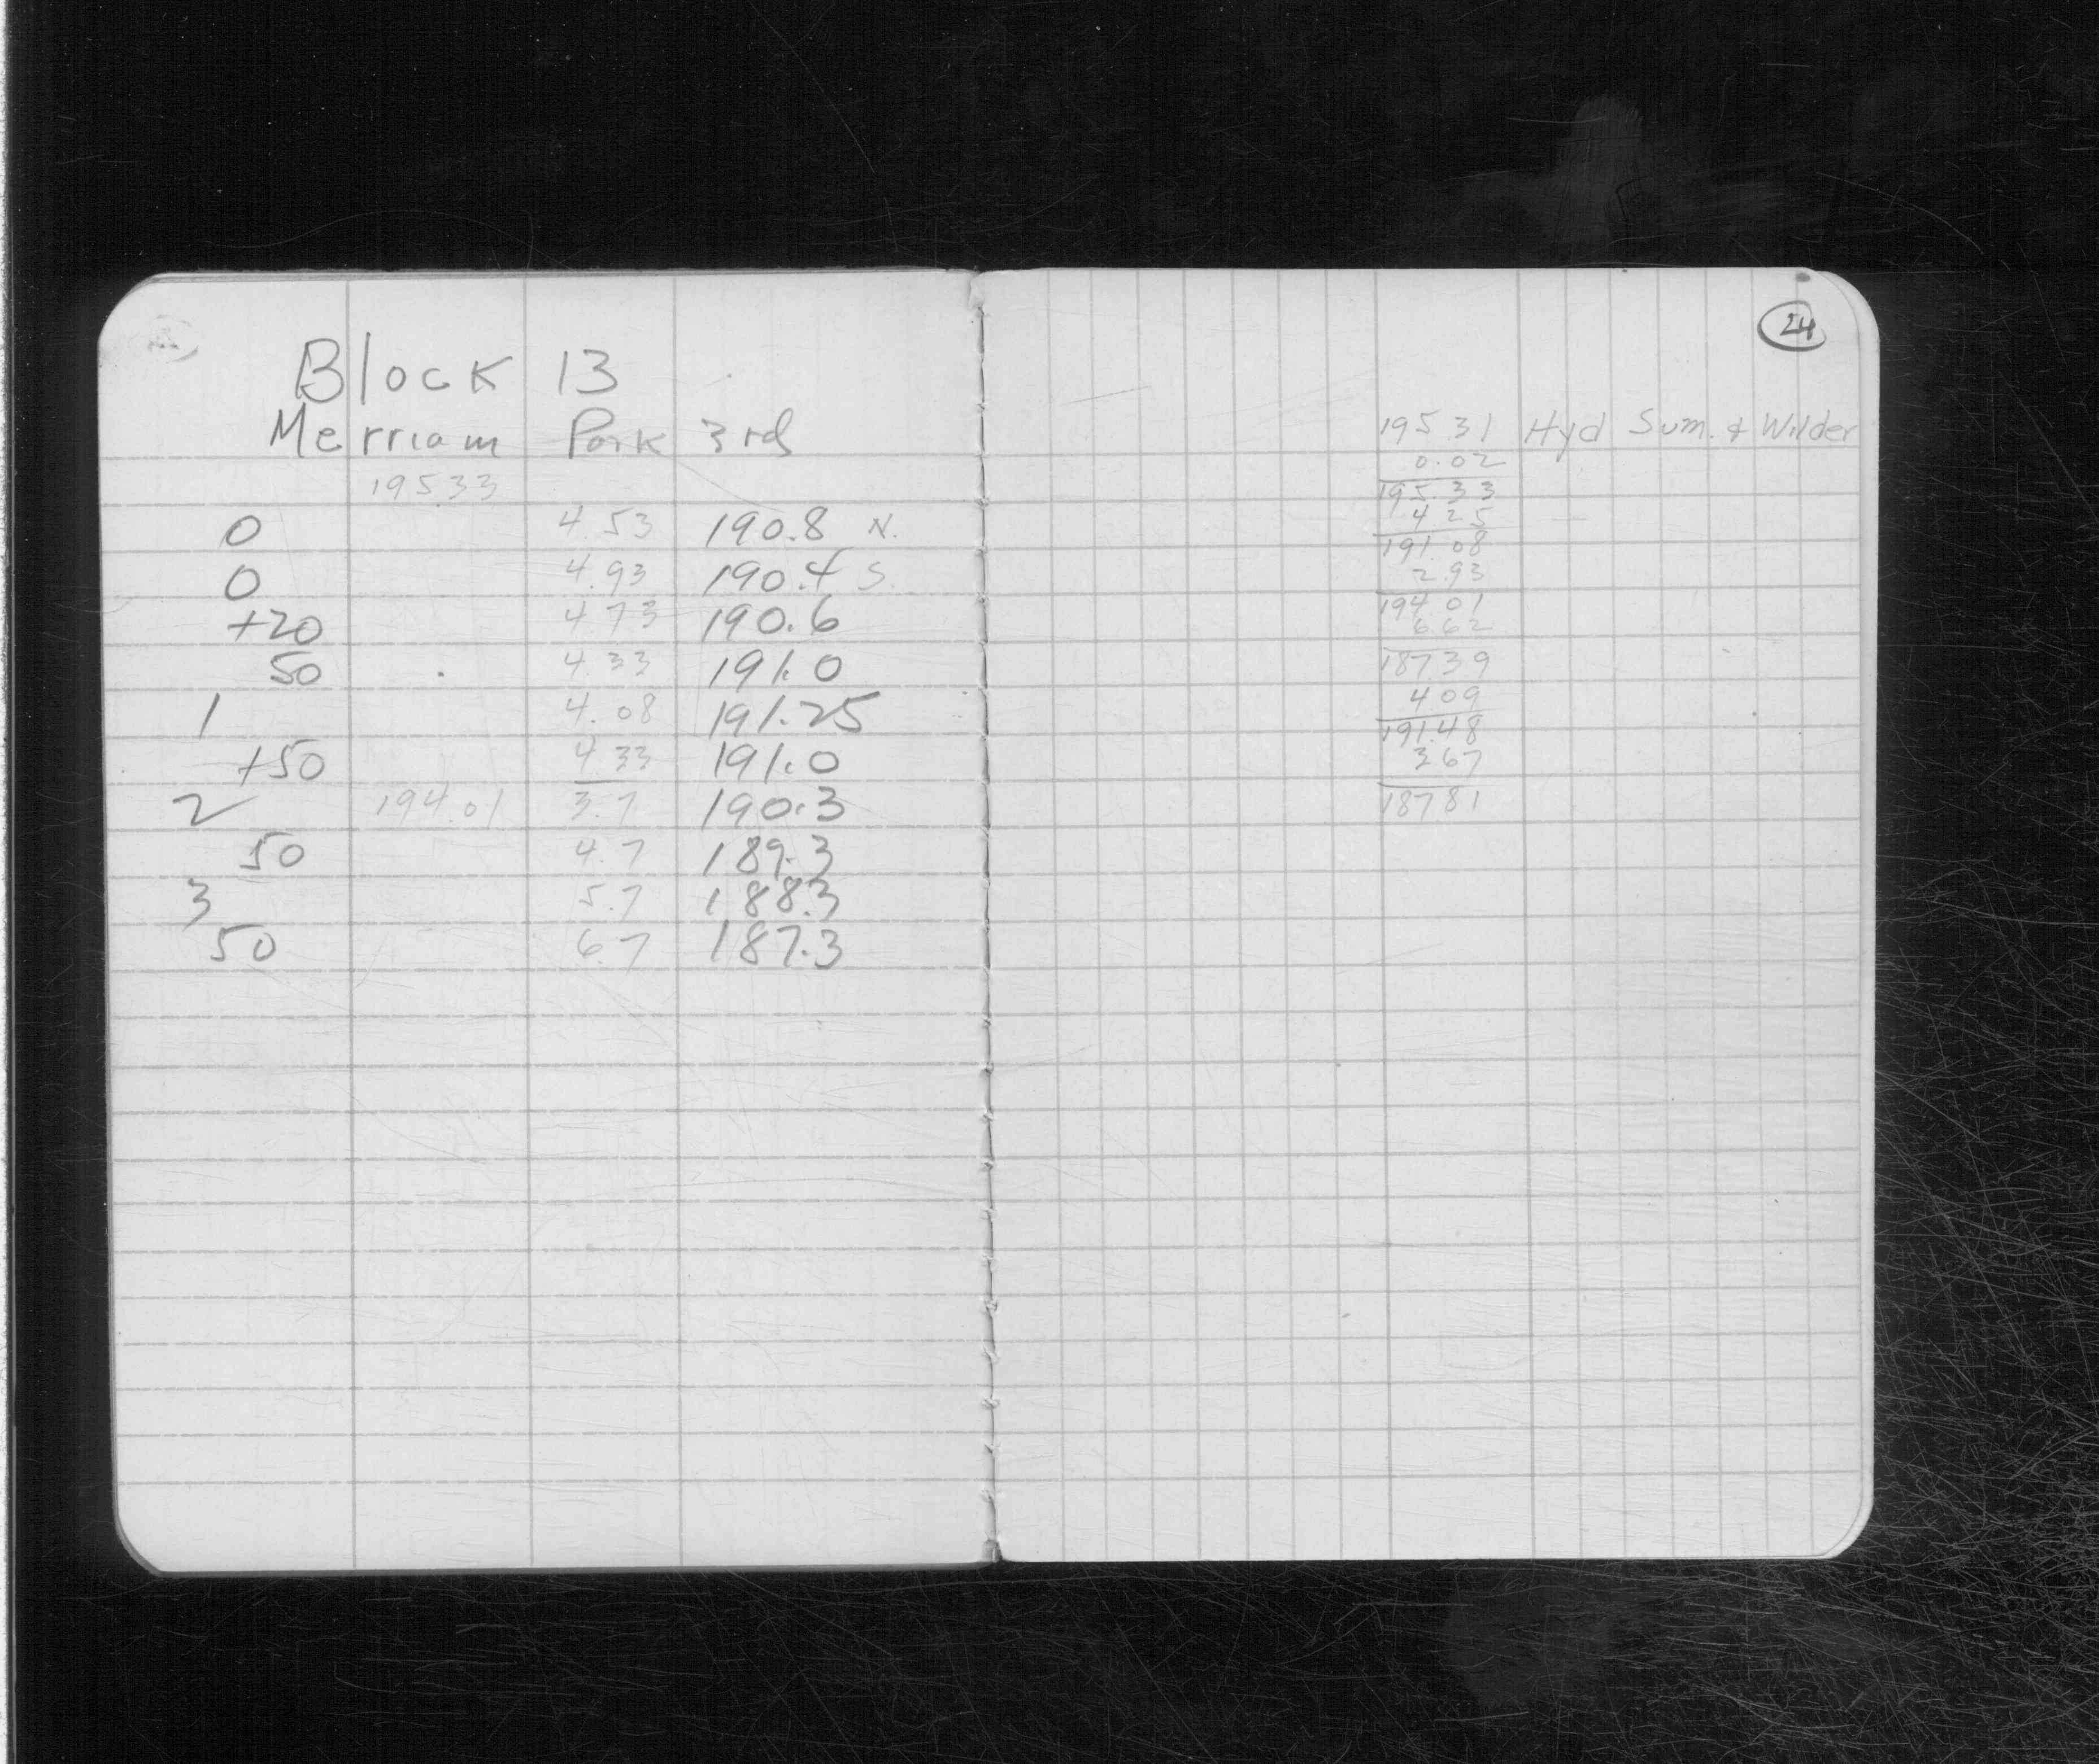 Block 13
Merriam Park 3rd
19533
0 4.53 190.8 N.
0 4.93 190.4 S.
+20 4.73 190.6
50 4.33 191.0
1 4.08 191.25
+50 4 33 191.0
2 194.01 3.7 190.3
50 4.7 189.3
3 5.7 188.3
50 6.7 187.3
24
195.31 Hyd Sum. & Wilder
0.02
195.33
4 25
191.08
2.93
194.01
6.62
187.39
4 09
191.48
3 67
187 81